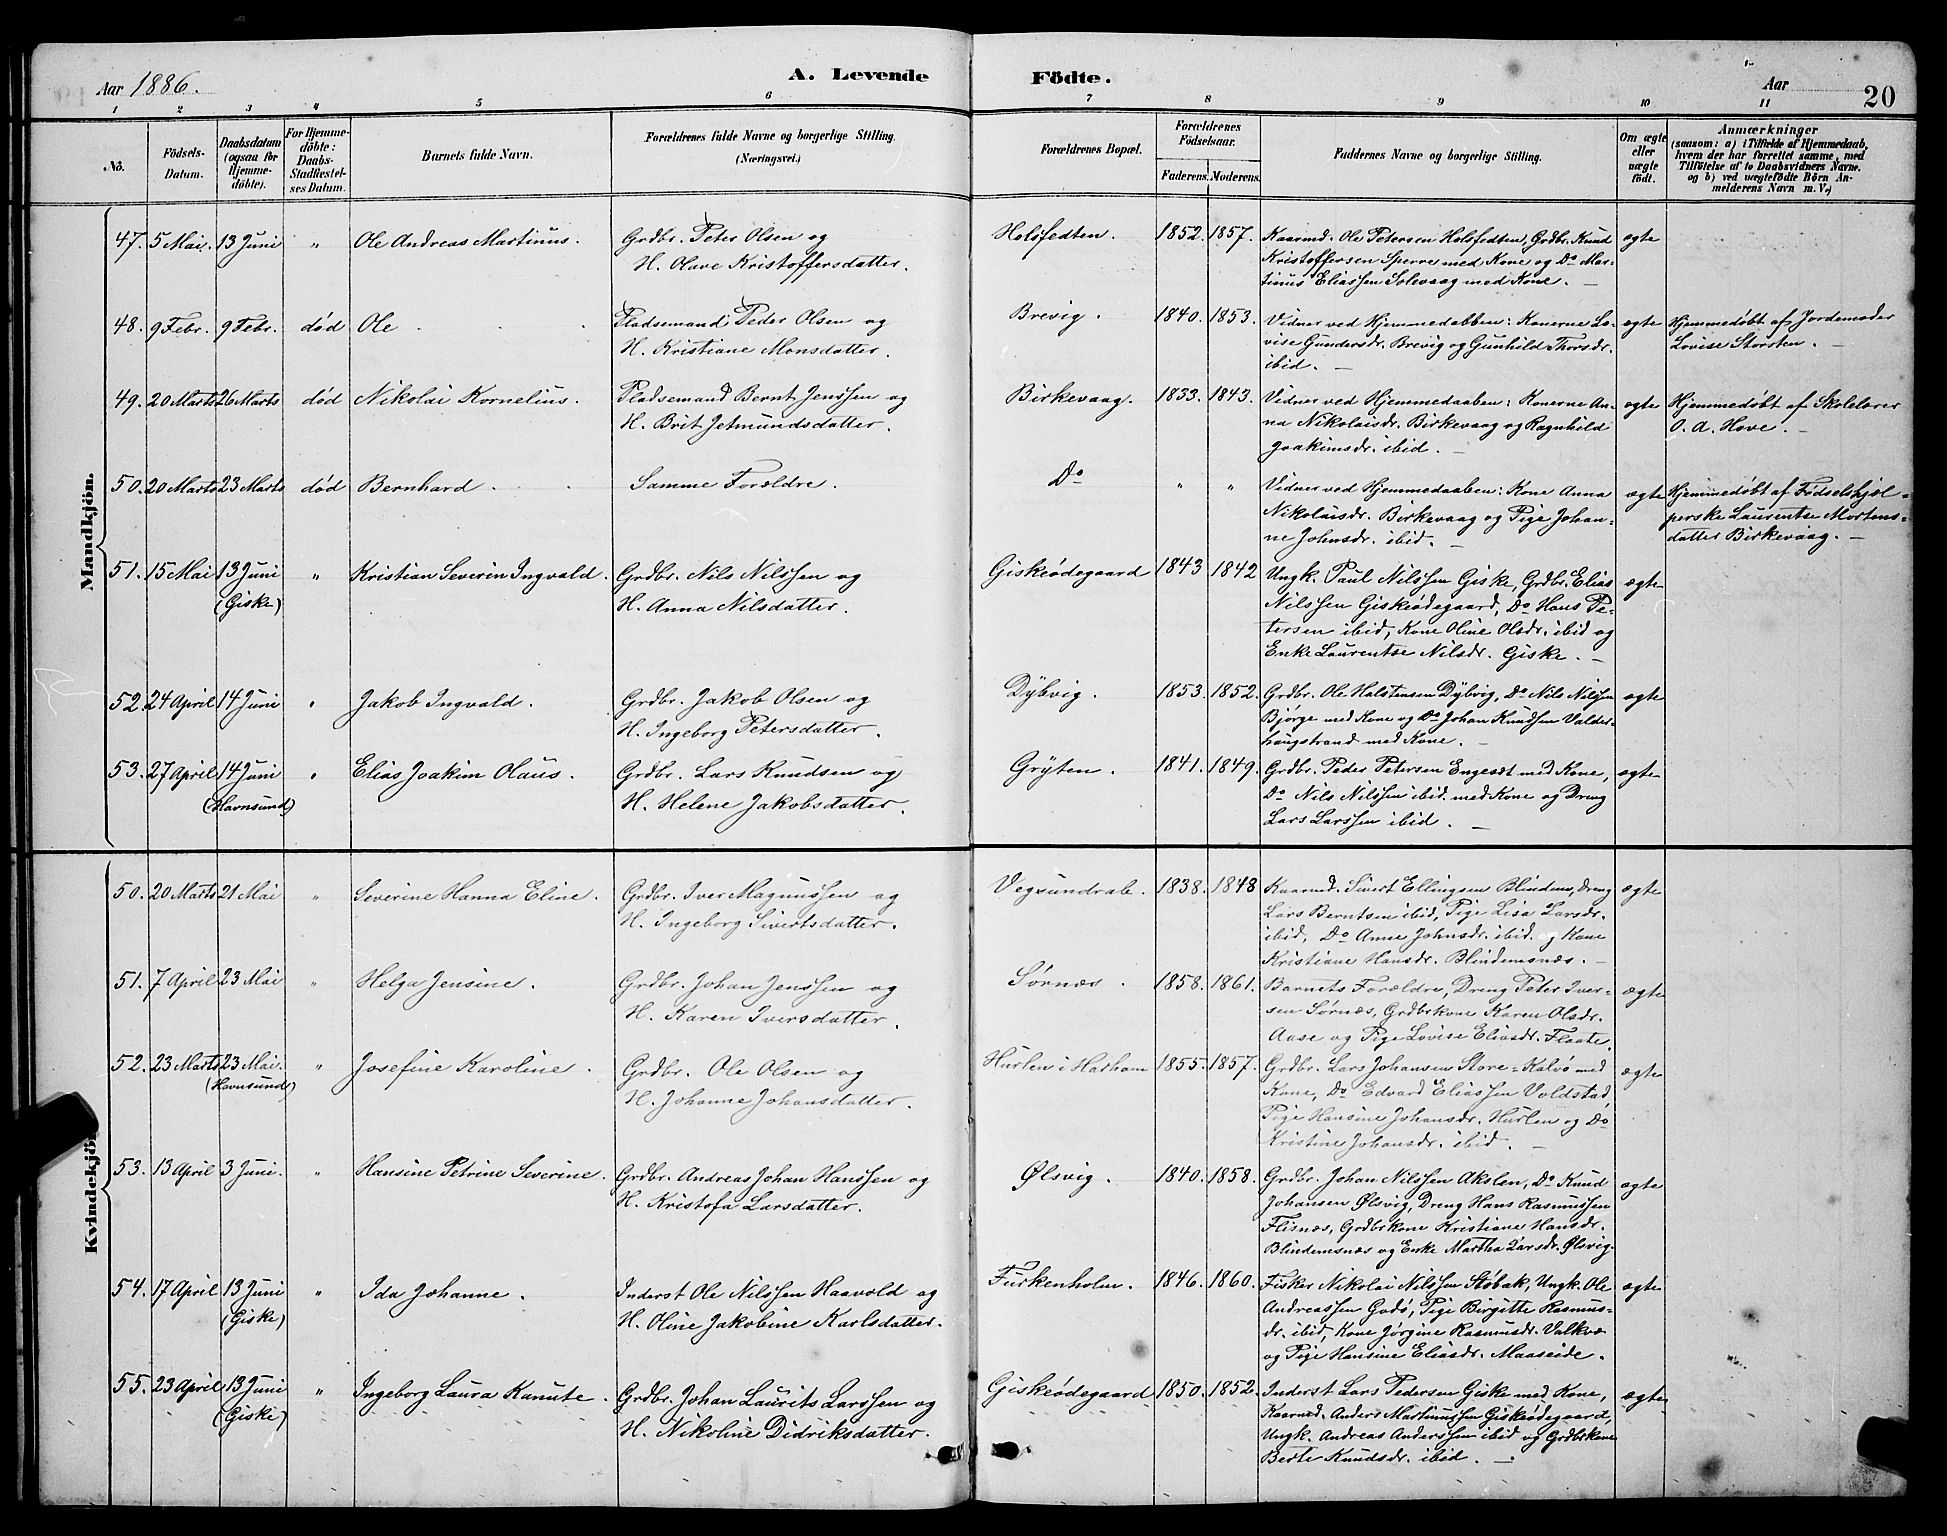 Aar 1886. A. Levende Födte. Aar 20
1 2 3 4 5 6 7 8 9 10 11
No. Födsels-Datum. Daabsdatum (ogsaa for Hjemme-döbte). For Hjemme-döbte: Daabs-Stadfæstel-ses Datum. Barnets fulde Navn. Forældrenes fulde Navne og borgerlige Stilling. (Næringsvei.) Forældrenes Bopæl. Forældrenes Födselsaar. Faderens. Moderens. Faddernes Navne og borgerlige Stilling. Om ægte eller uægte födt. Anmærkninger (saasom: a) i Tilfælde af Hjemmedaab, hvem der har forrettet samme, med Tilföielse af to Daabsvidners Navne, og b) ved uægtefödte Börn An-melderens Navn m. V.)
Mandkjön.
47. 5 Mai. 13 Juni " Ole Andreas Martinus. Grdbr. Peter Olsen og Holsfedten. 1852. 1857. Kaarmd. Ole Petersen Holsfedten, Grdbr. Knud ægte
H. Olave Kristoffersdatter. Kristoffersen Sperre med Kone og Do Mar-
tinus Eliassen Solevaag med Kone. —
48. 9 Febr. 9 Febr. død Ole Pladsemand Peder Olsen og Brevig. 1840. 1853. Vidner ved Hjemmedaaben: Konerne Lo- ægte Hjemmedøbt af Jordemoder
H. Kristiane Monsdatter. vise Gundersdr. Brevig og Gunhild Thorsdr. Lovise Storsten. —
ibid. —
49. 20 Marts 26 Marts død Nikolai Kornelius. Pladsemand Bernt Jenssen og Birkevaag. 1833. 1843. Vidner ved Hjemmedaaben: Konerne An- ægte Hjemmedøbt af Skolelærer
H. Brit Jetmundsdatter. na Nikolaisdr. Birkevaag og Ragnhild O. A. Hove. —
Joakimsdr. ibid. —
50. 20 Marts 23 Marts død Bernhard Samme Forældre. Do " " Vidner ved Hjemmedaaben: Kone Anna ægte Hjemmedøbt af Fødselshjæl-
Nikolaisdr. Birkevaag og Pige Johan- perske Laurentse Mortens-
ne Johnsdr. ibid. — datter Birkevaag. —
51. 15 Mai 13 Juni " Kristian Severin Ingvald. Grdbr. Nils Nilssen og Giskeødegaard 1843 1842 Ungk. Paul Nilssen Giske, Grdbr. Elias ægte
(Giske) H. Anna Nilsdatter. Nilssen Giskeødegaard, Do Hans Pe-
tersen ibid, Kone Oline Olsdr. ibid og
Enke Laurentse Nilsdr. Giske. —
52. 24 April 14 Juni " Jakob Ingvald. Grdbr. Jakob Olsen og Dybvig. 1853. 1852. Grdbr. Ole Halstensen Dybvig, Do Nils Nilssen ægte
H. Ingeborg Petersdatter. Bjørge med Kone og Do Johan Knudsen Valder-
haugstrand med Kone. —
53. 27 April 14 Juni " Elias Joakim Olaus. Grdbr. Lars Knudsen og Gryten. 1841. 1849. Grdbr. Peder Petersen Engesæt med Kone, ægte
(Havnsund) H. Helene Jakobsdatter. Do Nils Nilssen ibid. med Kone og Dreng
Lars Larssen ibid. —
Kvindekjö
50. 20 Marts 21 Mai " Severine Hanna Eline. Grdbr. Iver Magnussen og Vegsundrab. 1838. 1848 Kaarmd. Sivert Ellingsen Blindem, Dreng ægte
H. Ingeborg Sivertsdatter. Lars Berntsen ibid, Pige Lisa Larsdr.
ibid, Do Anne Johnsdr. ibid. og Kone
Kristiane Hansdr. Blindemsnæs. —
51. 7 April 23 Mai " Helga Jensine. Grdbr. Johan Jenssen og Sørnæs. 1858. 1861. Barnets Forældre, Dreng Peter Iver- ægte
H. Karen Iversdatter. sen Sørnæs, Grdbrkone Karen Olsdr.
Aase og Pige Lovise Eliasdr. Flaate.
52. 23 Marts 23 Mai. " Josefine Karoline. Grdbr. Ole Olsen og Hurlen i Harham 1855. 1857. Grdbr. Lars Johansen Store-Kalvø med ægte
(Havnsund) H. Johanne Johansdatter. Kone, Do Edvard Eliassen Voldstad,
Pige Hansine Johansdr. Hurlen og Do
Kristine Johansdr. ibid. —
53. 13 April 3 Juni. " Hansine Petrine Severine. Grdbr. Andreas Johan Hanssen og Ølsvig. 1840. 1858. Grdbr. Johan Nilssen Akslen, Do Knud ægte
H. Kristofa Larsdatter. Johansen Ølsvig, Dreng Hans Rasmussen
Flisnæs, Grdbrkone Kristiane Hansdr.
Blindemsnæs og Enke Martha Larsdr. Ølsvig.
54. 17 April 13 Juni " Ida Johanne. Inderst Ole Nilssen Haavold og Furkenholm. 1846. 1860. Fisker Nikolai Nilssen Støbak, Ungk. Ole ægte
(Giske) H. Oline Jakobine Karlsdatter. Andreassen Godø, Pige Birgitte Rasmus-
dr. ibid, Kone Jørgine Rasmusdr. Valkvæ
og Pige Hansine Eliasdr. Maaseide.
55. 23 April 13 Juni " Ingeborg Laura Kanute. Grdbr. Johan Laurits Larssen og Giskeødegaard 1850. 1852. Inderst Lars Pedersen Giske med Kone, ægte
(Giske) H. Nikoline Didriksdatter. Kaarmd. Anders Martinussen Giskeødegaard,
Ungk. Andreas Anderssen ibid og Grdbrkone
Berte Knudsdr. ibid. —